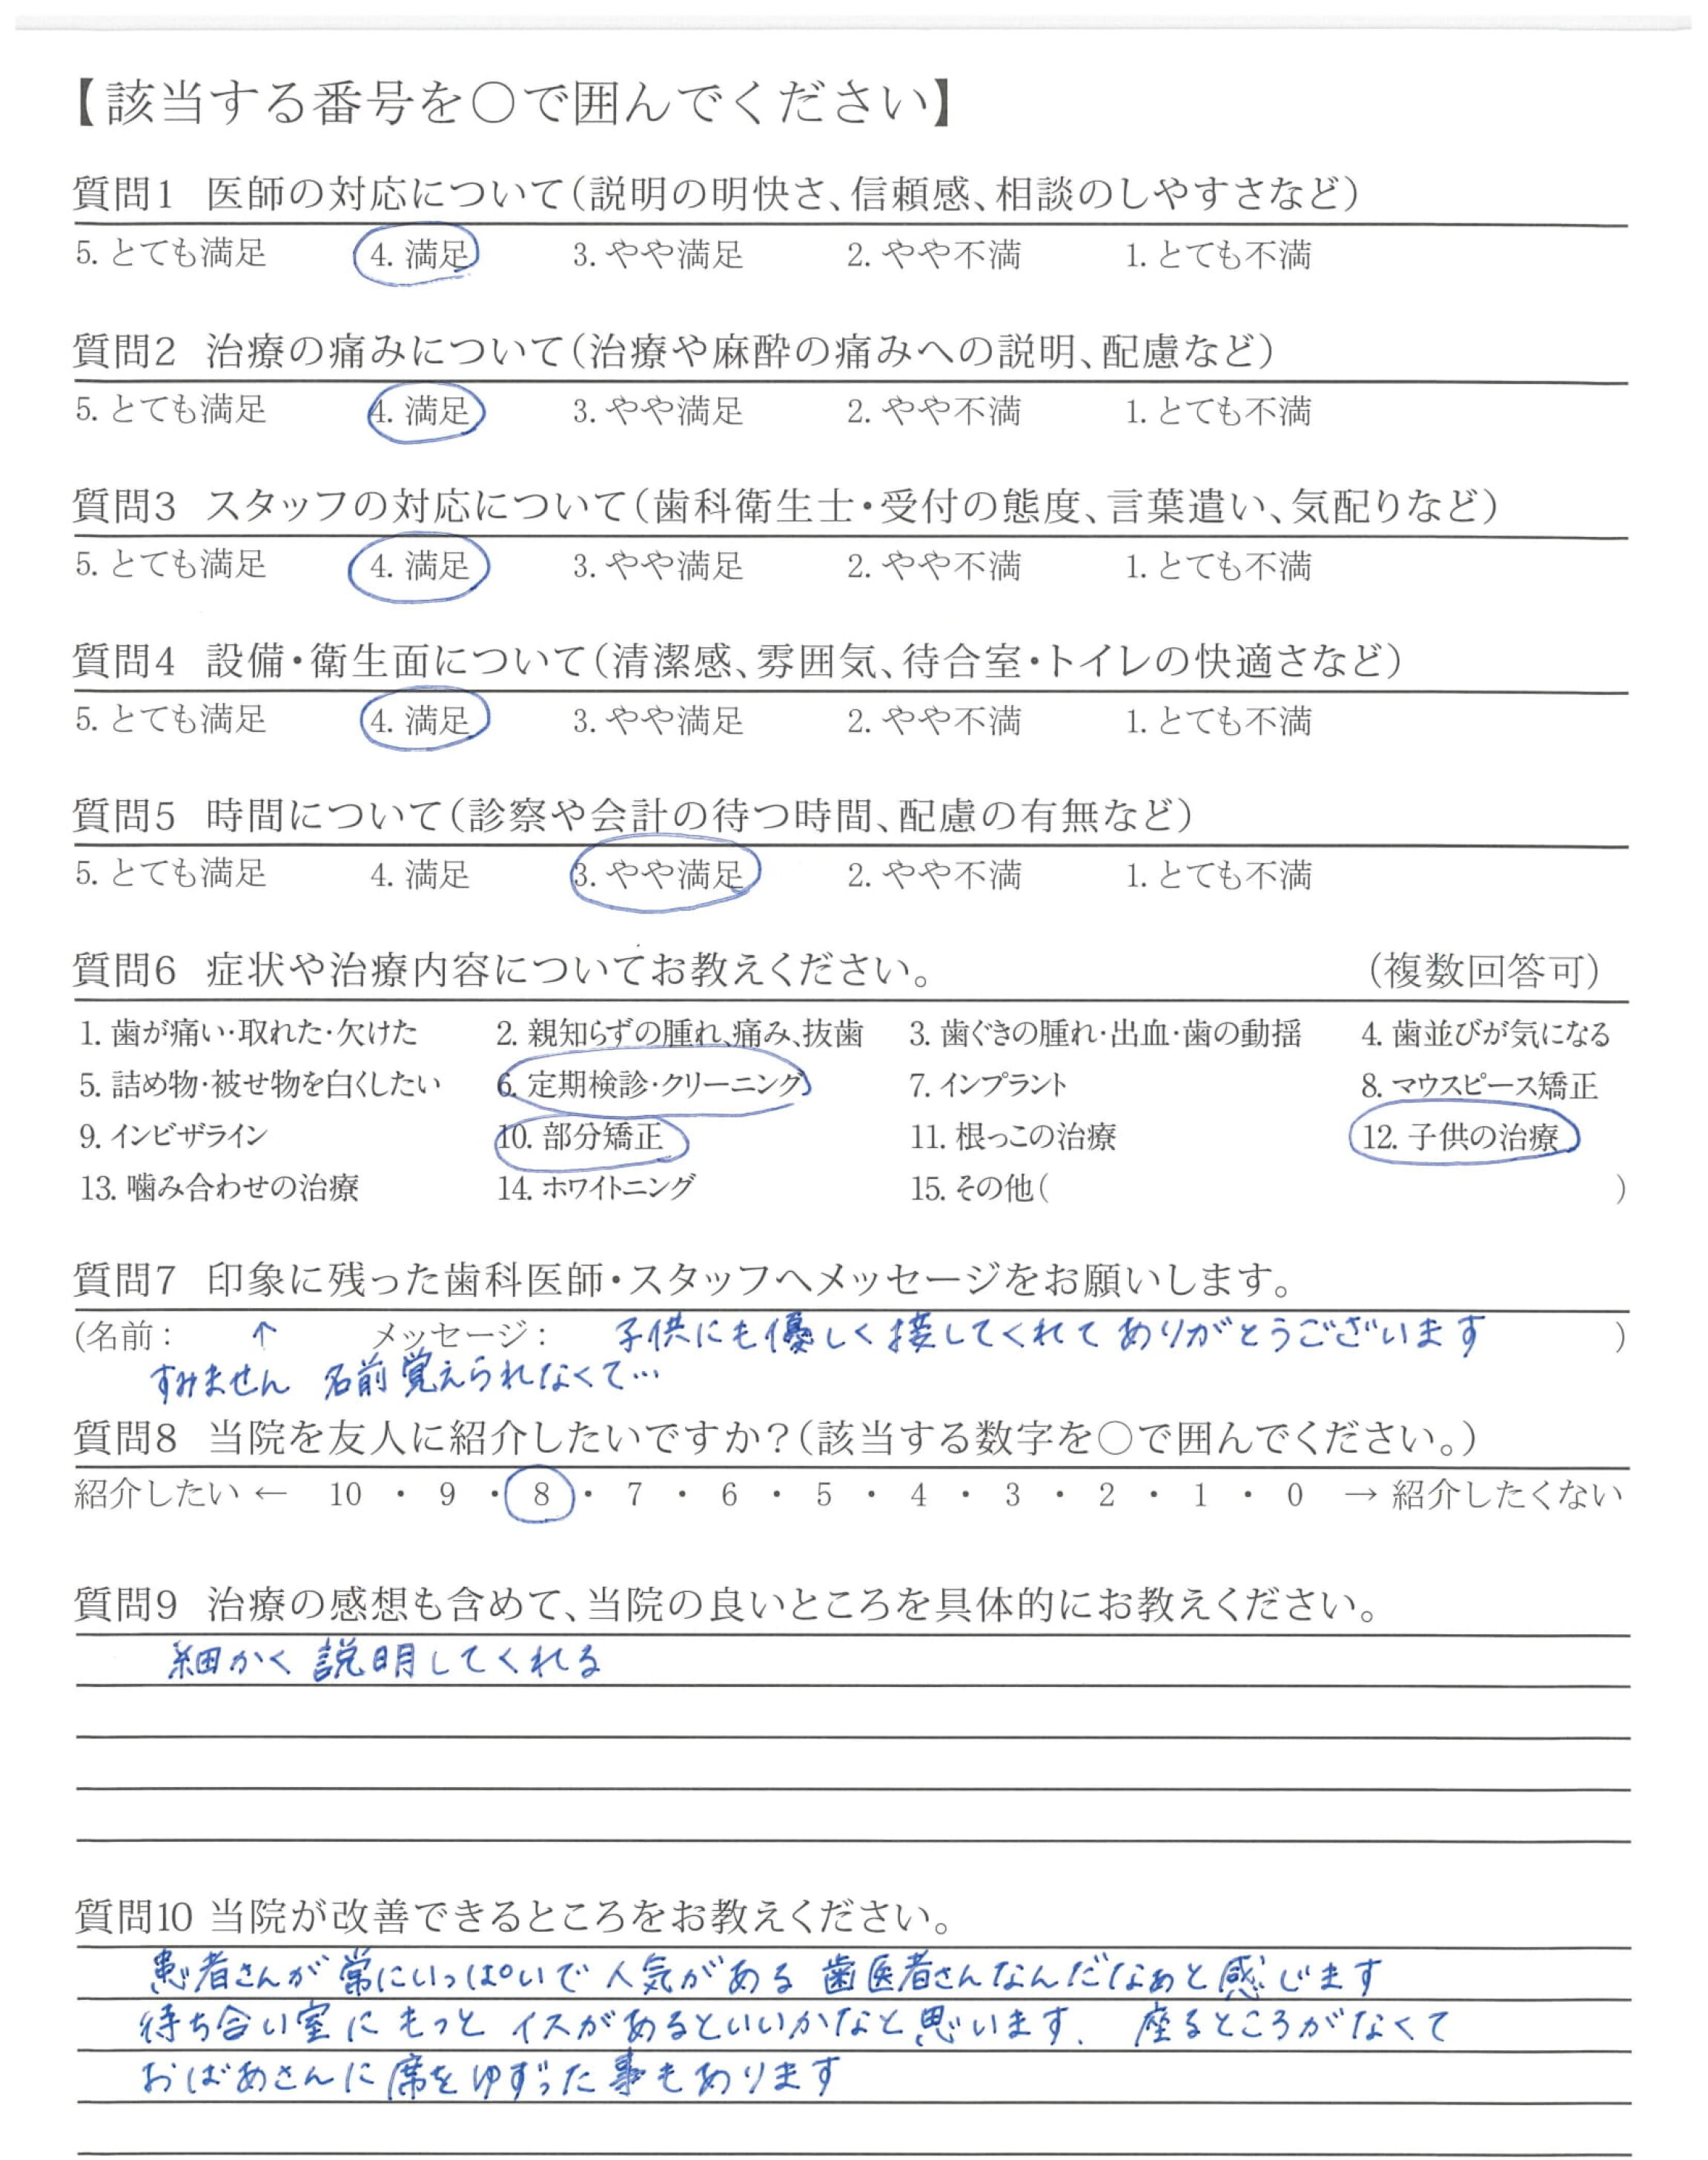 【該当する番号を○で囲んでください】
質問1 医師の対応について（説明の明快さ、信頼感、相談のしやすさなど）
5. とても満足 4. 満足 3. やや満足 2. やや不満 1. とても不満
質問2 治療の痛みについて（治療や麻酔の痛みへの説明、配慮など）
5. とても満足 4. 満足 3. やや満足 2. やや不満 1. とても不満
質問3 スタッフの対応について（歯科衛生士・受付の態度、言葉遣い、気配りなど）
5. とても満足 4. 満足 3. やや満足 2. やや不満 1. とても不満
質問4 設備・衛生面について（清潔感、雰囲気、待合室・トイレの快適さなど）
5. とても満足 4. 満足 3. やや満足 2. やや不満 1. とても不満
質問5 時間について（診察や会計の待つ時間、配慮の有無など）
5. とても満足 4. 満足 3. やや満足 2. やや不満 1. とても不満
質問6 症状や治療内容についてお教えください。 （複数回答可）
1. 歯が痛い・取れた・欠けた 2. 親知らずの腫れ、痛み、抜歯 3. 歯ぐきの腫れ・出血・歯の動揺 4. 歯並びが気になる
5. 詰め物・被せ物を白くしたい 6. 定期検診・クリーニング 7. インプラント 8. マウスピース矯正
9. インビザライン 10. 部分矯正 11. 根っこの治療 12. 子供の治療
13. 噛み合わせの治療 14. ホワイトニング 15. その他（ ）
質問7 印象に残った歯科医師・スタッフへメッセージをお願いします。
（名前： ↑ メッセージ： 子供にも優しく接してくれてありがとうございます ）
すみません 名前覚えられなくて…
質問8 当院を友人に紹介したいですか？（該当する数字を○で囲んでください。）
紹介したい ← 10 ・ 9 ・ 8 ・ 7 ・ 6 ・ 5 ・ 4 ・ 3 ・ 2 ・ 1 ・ 0 → 紹介したくない
質問9 治療の感想も含めて、当院の良いところを具体的にお教えください。
細かく説明してくれる
質問10 当院が改善できるところをお教えください。
患者さんが常にいっぱいで人気がある歯医者さんなんだなぁと感じます
待ち合い室にもっとイスがあるといいかなと思います. 座るところがなくて
おばあさんに席をゆずった事もあります